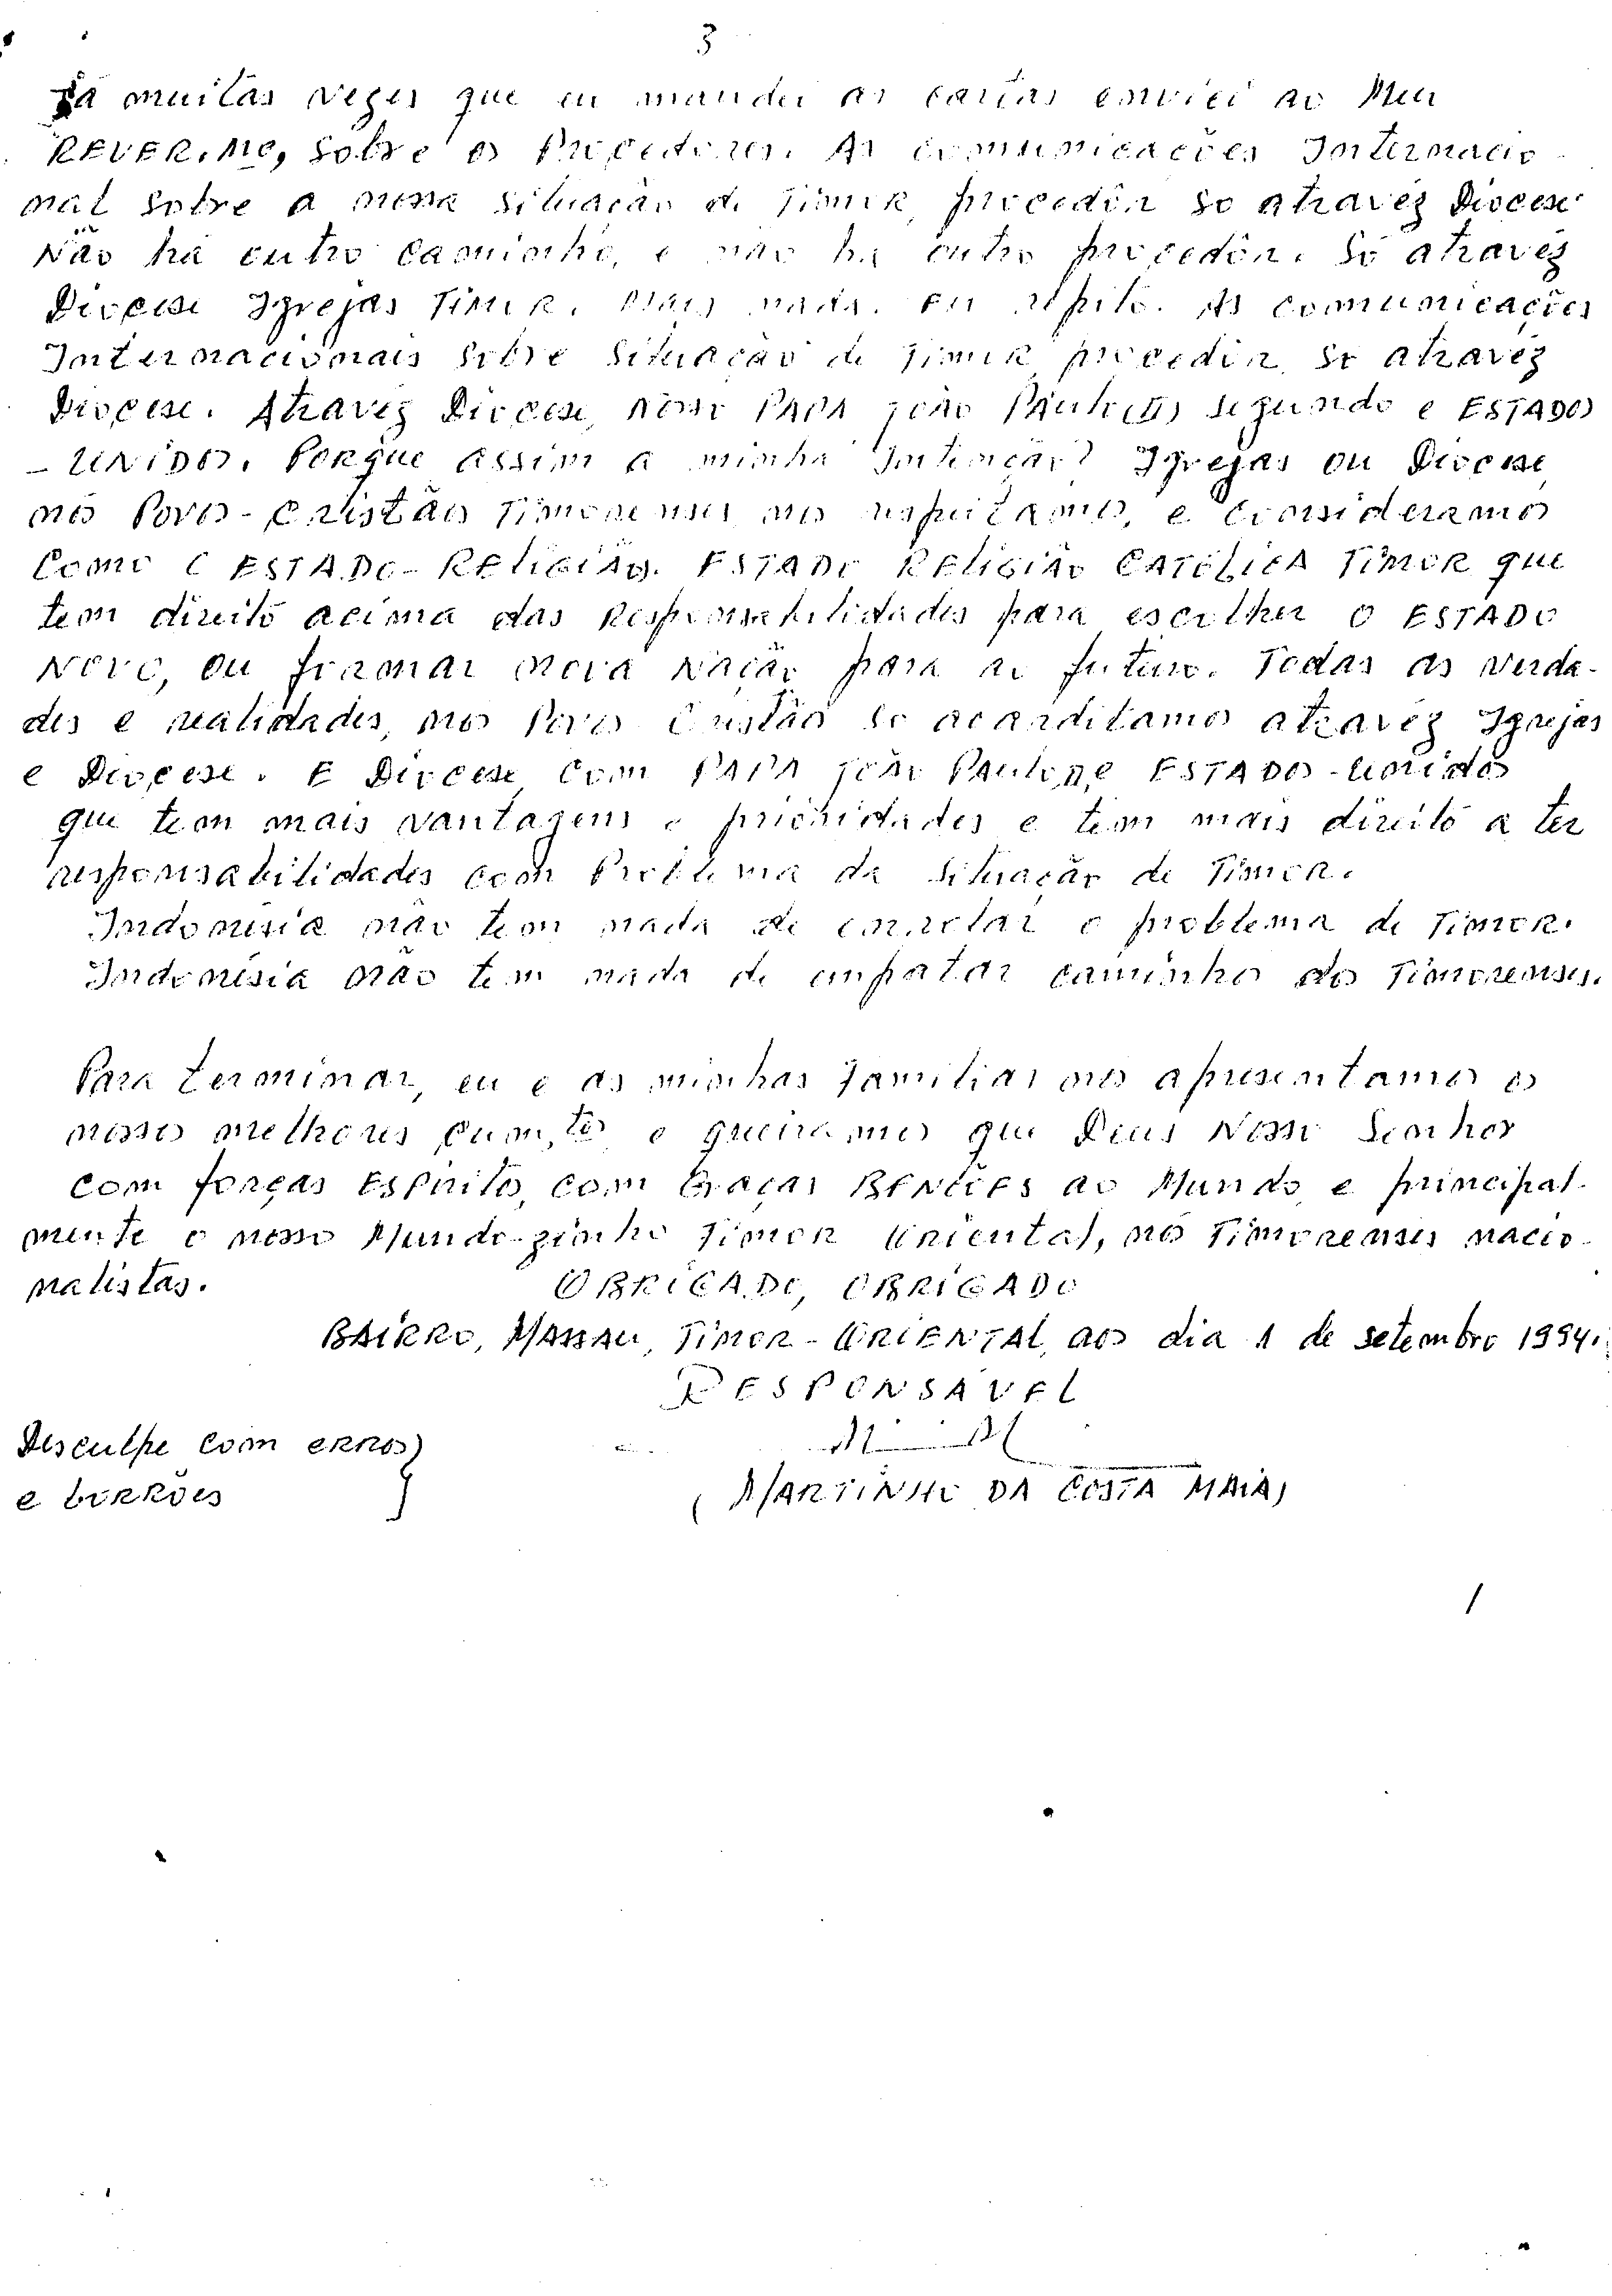 3
Já muitas vezes que eu mandei as cartas enviei ao Meu
REVER.MO, sobre os Procedores. As comunicações Internacio-
nal sobre a nossa situação de Timor, procedôr so atravéz Diocese
Não há outro caminho, e não há outro procedôr. Só atravéz
Diocese Igrejas Timor. Mais nada. Eu repito. As comunicações
Internacionais sobre situação de Timor procedôr, so atravéz
Diocese. Atravéz Diocese, Nosso PAPA João Paulo segundo e ESTADOS
-UNIDOS. Porque assim a minha Intenção? Igrejas ou Diocese,
nós Povos-Cristãos Timorenses nos respeitamos, e consideramos
como O ESTADO-RELIGIÃO. ESTADO RELIGIÃO CATÓLICA TIMOR que
tem direito acima das Responsabilidades para escolher O ESTADO
NOVO, ou formar nova Nação para ao futuro. Todas as verda-
des e realidades, nós Povos Cristão so acarditamos atravéz Igrejas
e Diocese. E Diocese com PAPA João Paulo II, e ESTADOS-Unidos
que tem mais vantagens e prioridades e tem mais direito a ter
responsabilidades com Problema da situação de Timor.
Indonésia não tem nada de correlar o problema de Timor.
Indonésia não tem nada de empatar caminho dos Timorenses.
Para terminar, eu e as minhas familias nos apresentamos os
nossos melhores cum.tos e queiramos que Deus Nosso Senhor
com forças Espírito, com Graças BENÇÕES ao Mundo e principal-
mente o nosso Mundo-zinho Timor Oriental, nós Timorenses nacio-
nalistas. OBRIGADO, OBRIGADO
BAIRRO, MASSAU, TIMOR-ORIENTAL, aos dia 1 de setembro 1994.
RESPONSAVEL
Desculpe com erros
e borrões
(MARTINHO DA COSTA MAIA)